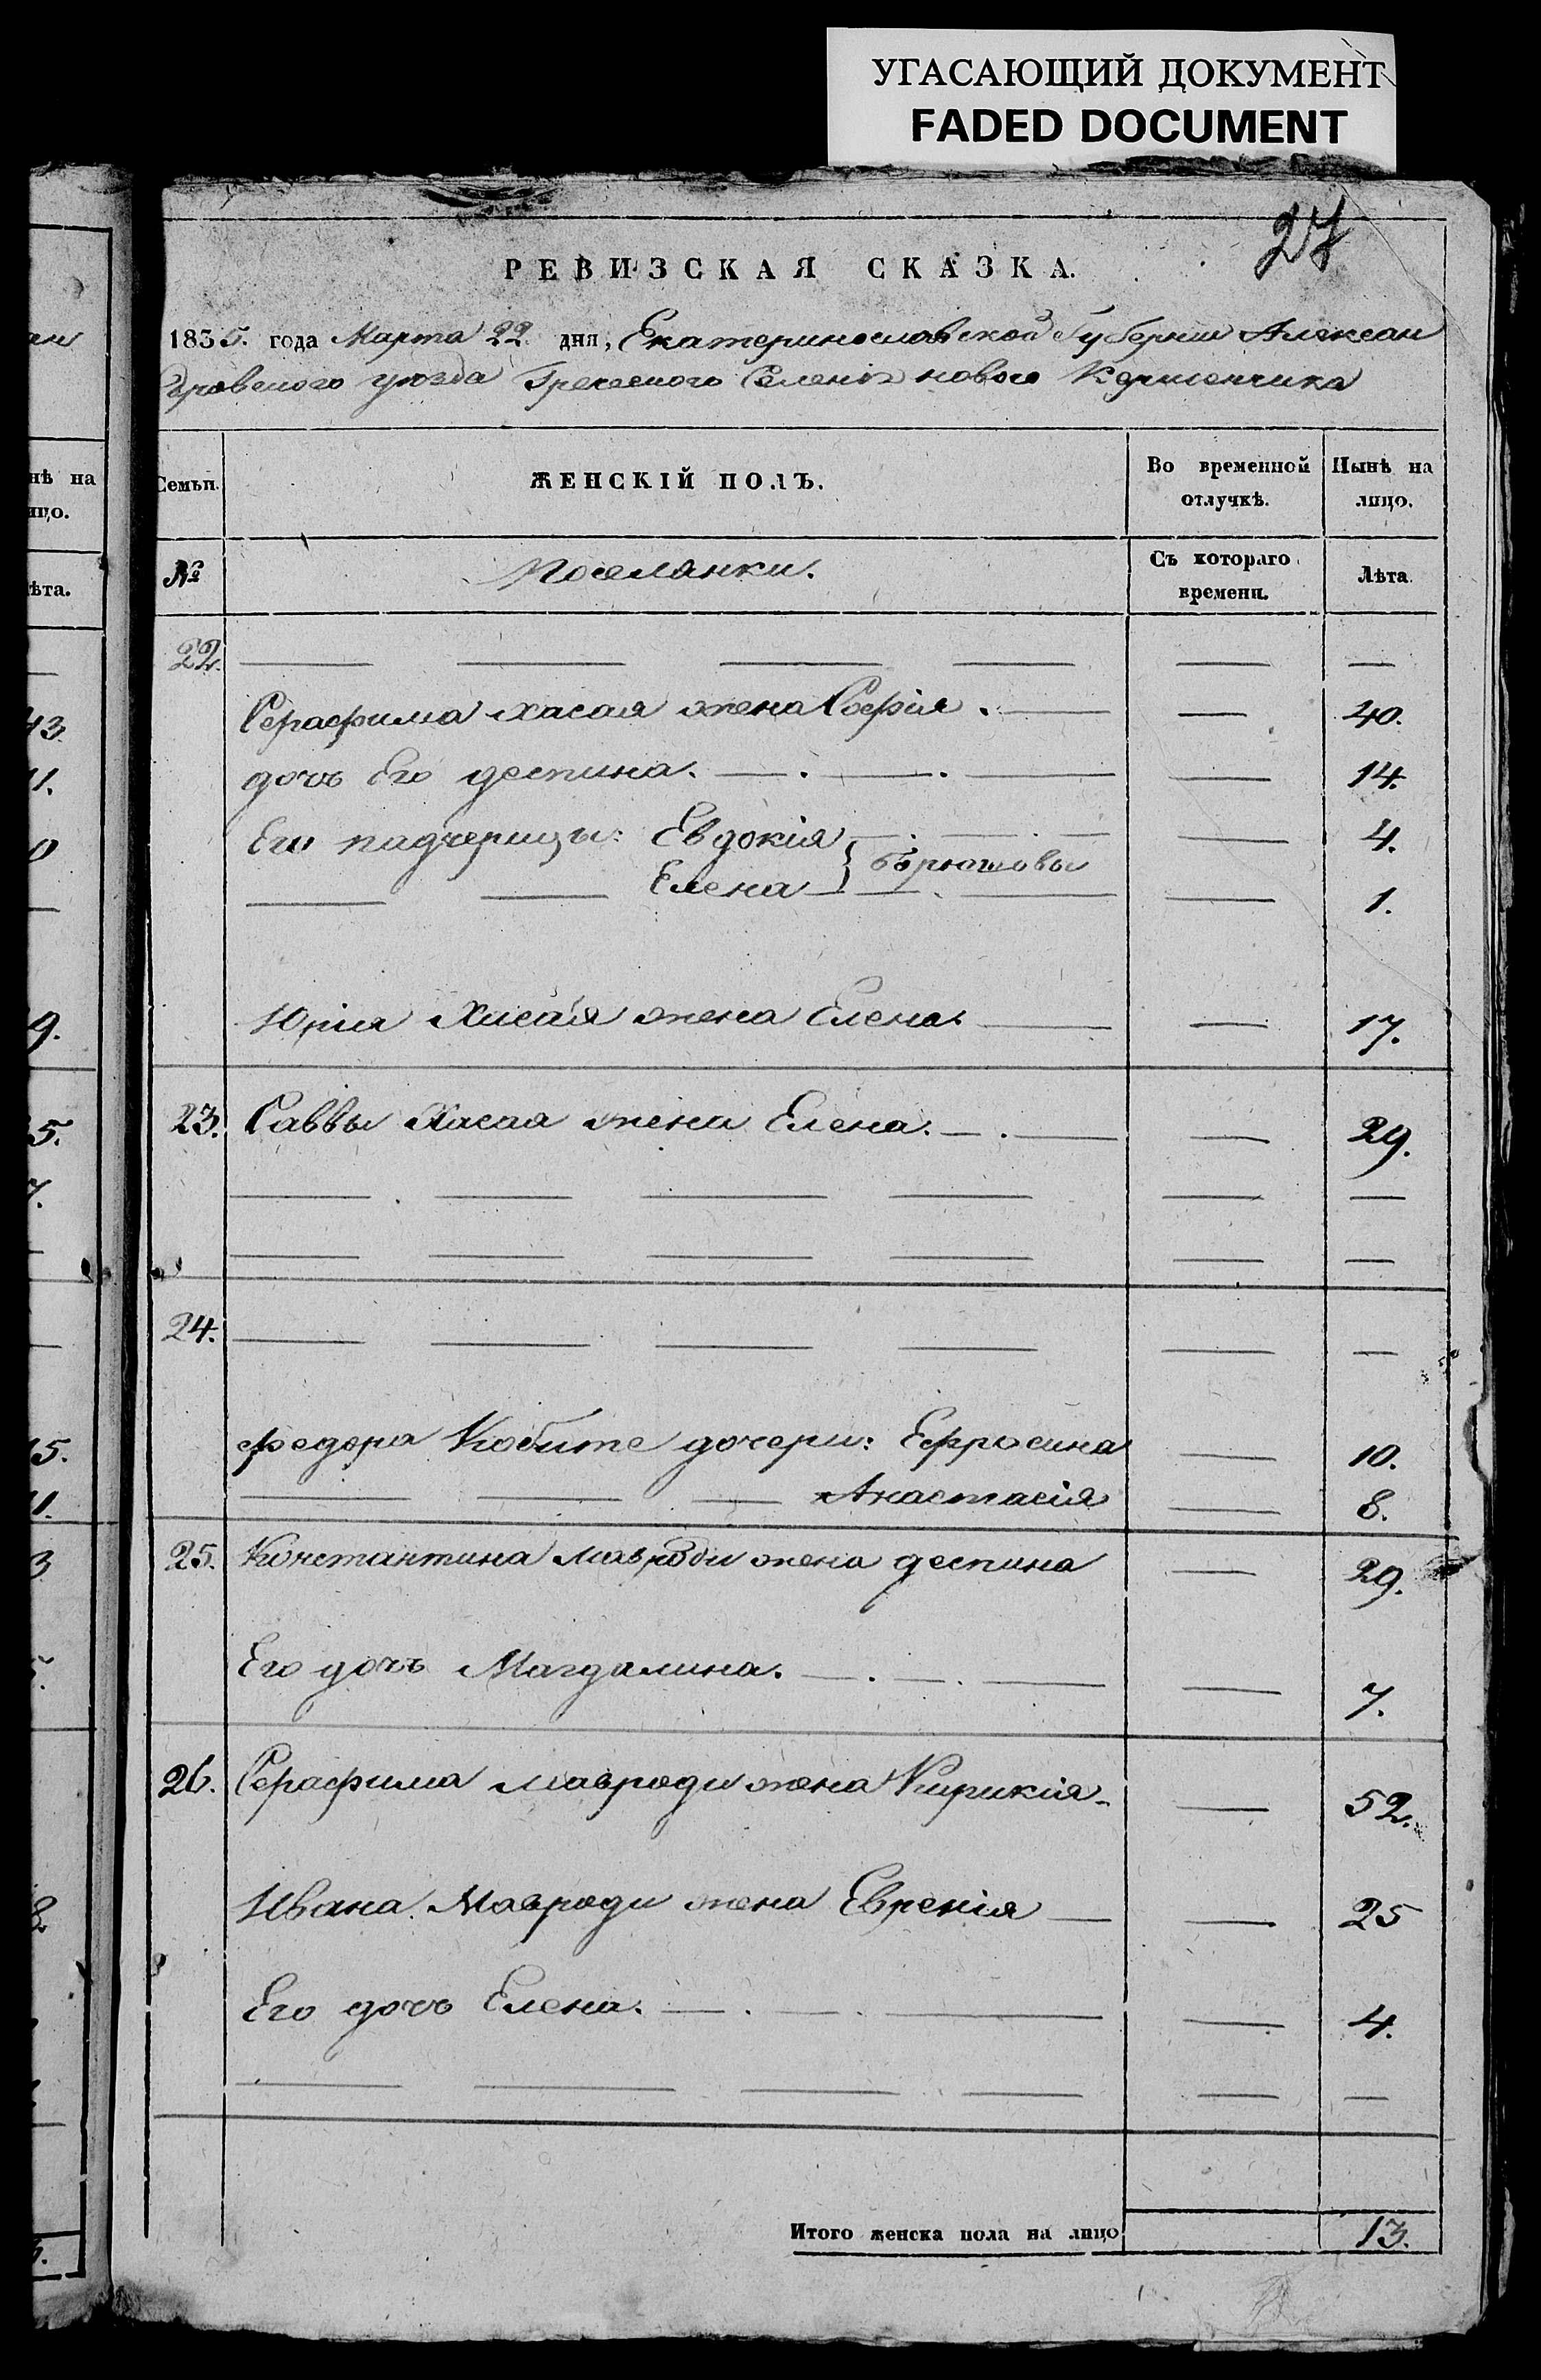 УГАСАЮЩИЙ ДОКУМЕНТ
FADED DOCUMENT
27
РЕВИЗСКАЯ СКАЗКА.
1835. года Марта 22 дня, Екатеринославской Губернии Александ
ровского уезда Греческого Селения нового Керменчика
Семьи. ЖЕНСКІЙ ПОЛЪ. Во временной отлучкѣ. Нынѣ на лицо.
№ Поселянки. Съ котораго времени. Лѣта
22.
Серафима Хасая жена Софія. 40.
дочь Его деспина. 14.
Его падчерицы: Евдокія 4.
Елена } 1.
Юрія Хасая жена Елена. 17.
23. Саввы Хасая жена Елена. 29.
24.
Федора Кобите дочери: Ефросина 10.
Анастасія 8.
25. Константина Мавроди жена деспина 29.
Его дочь Магдалина. 7.
26. Серафима Мавроди жена Кирикія 52.
Ивана Мавроди жена Евгенія 25
Его дочь Елена. 4.
Итого женска пола на лицо 13.
нѣ на
ицо.
ѣта.
43.
11.
0
9.
5.
7.
15.
11.
3